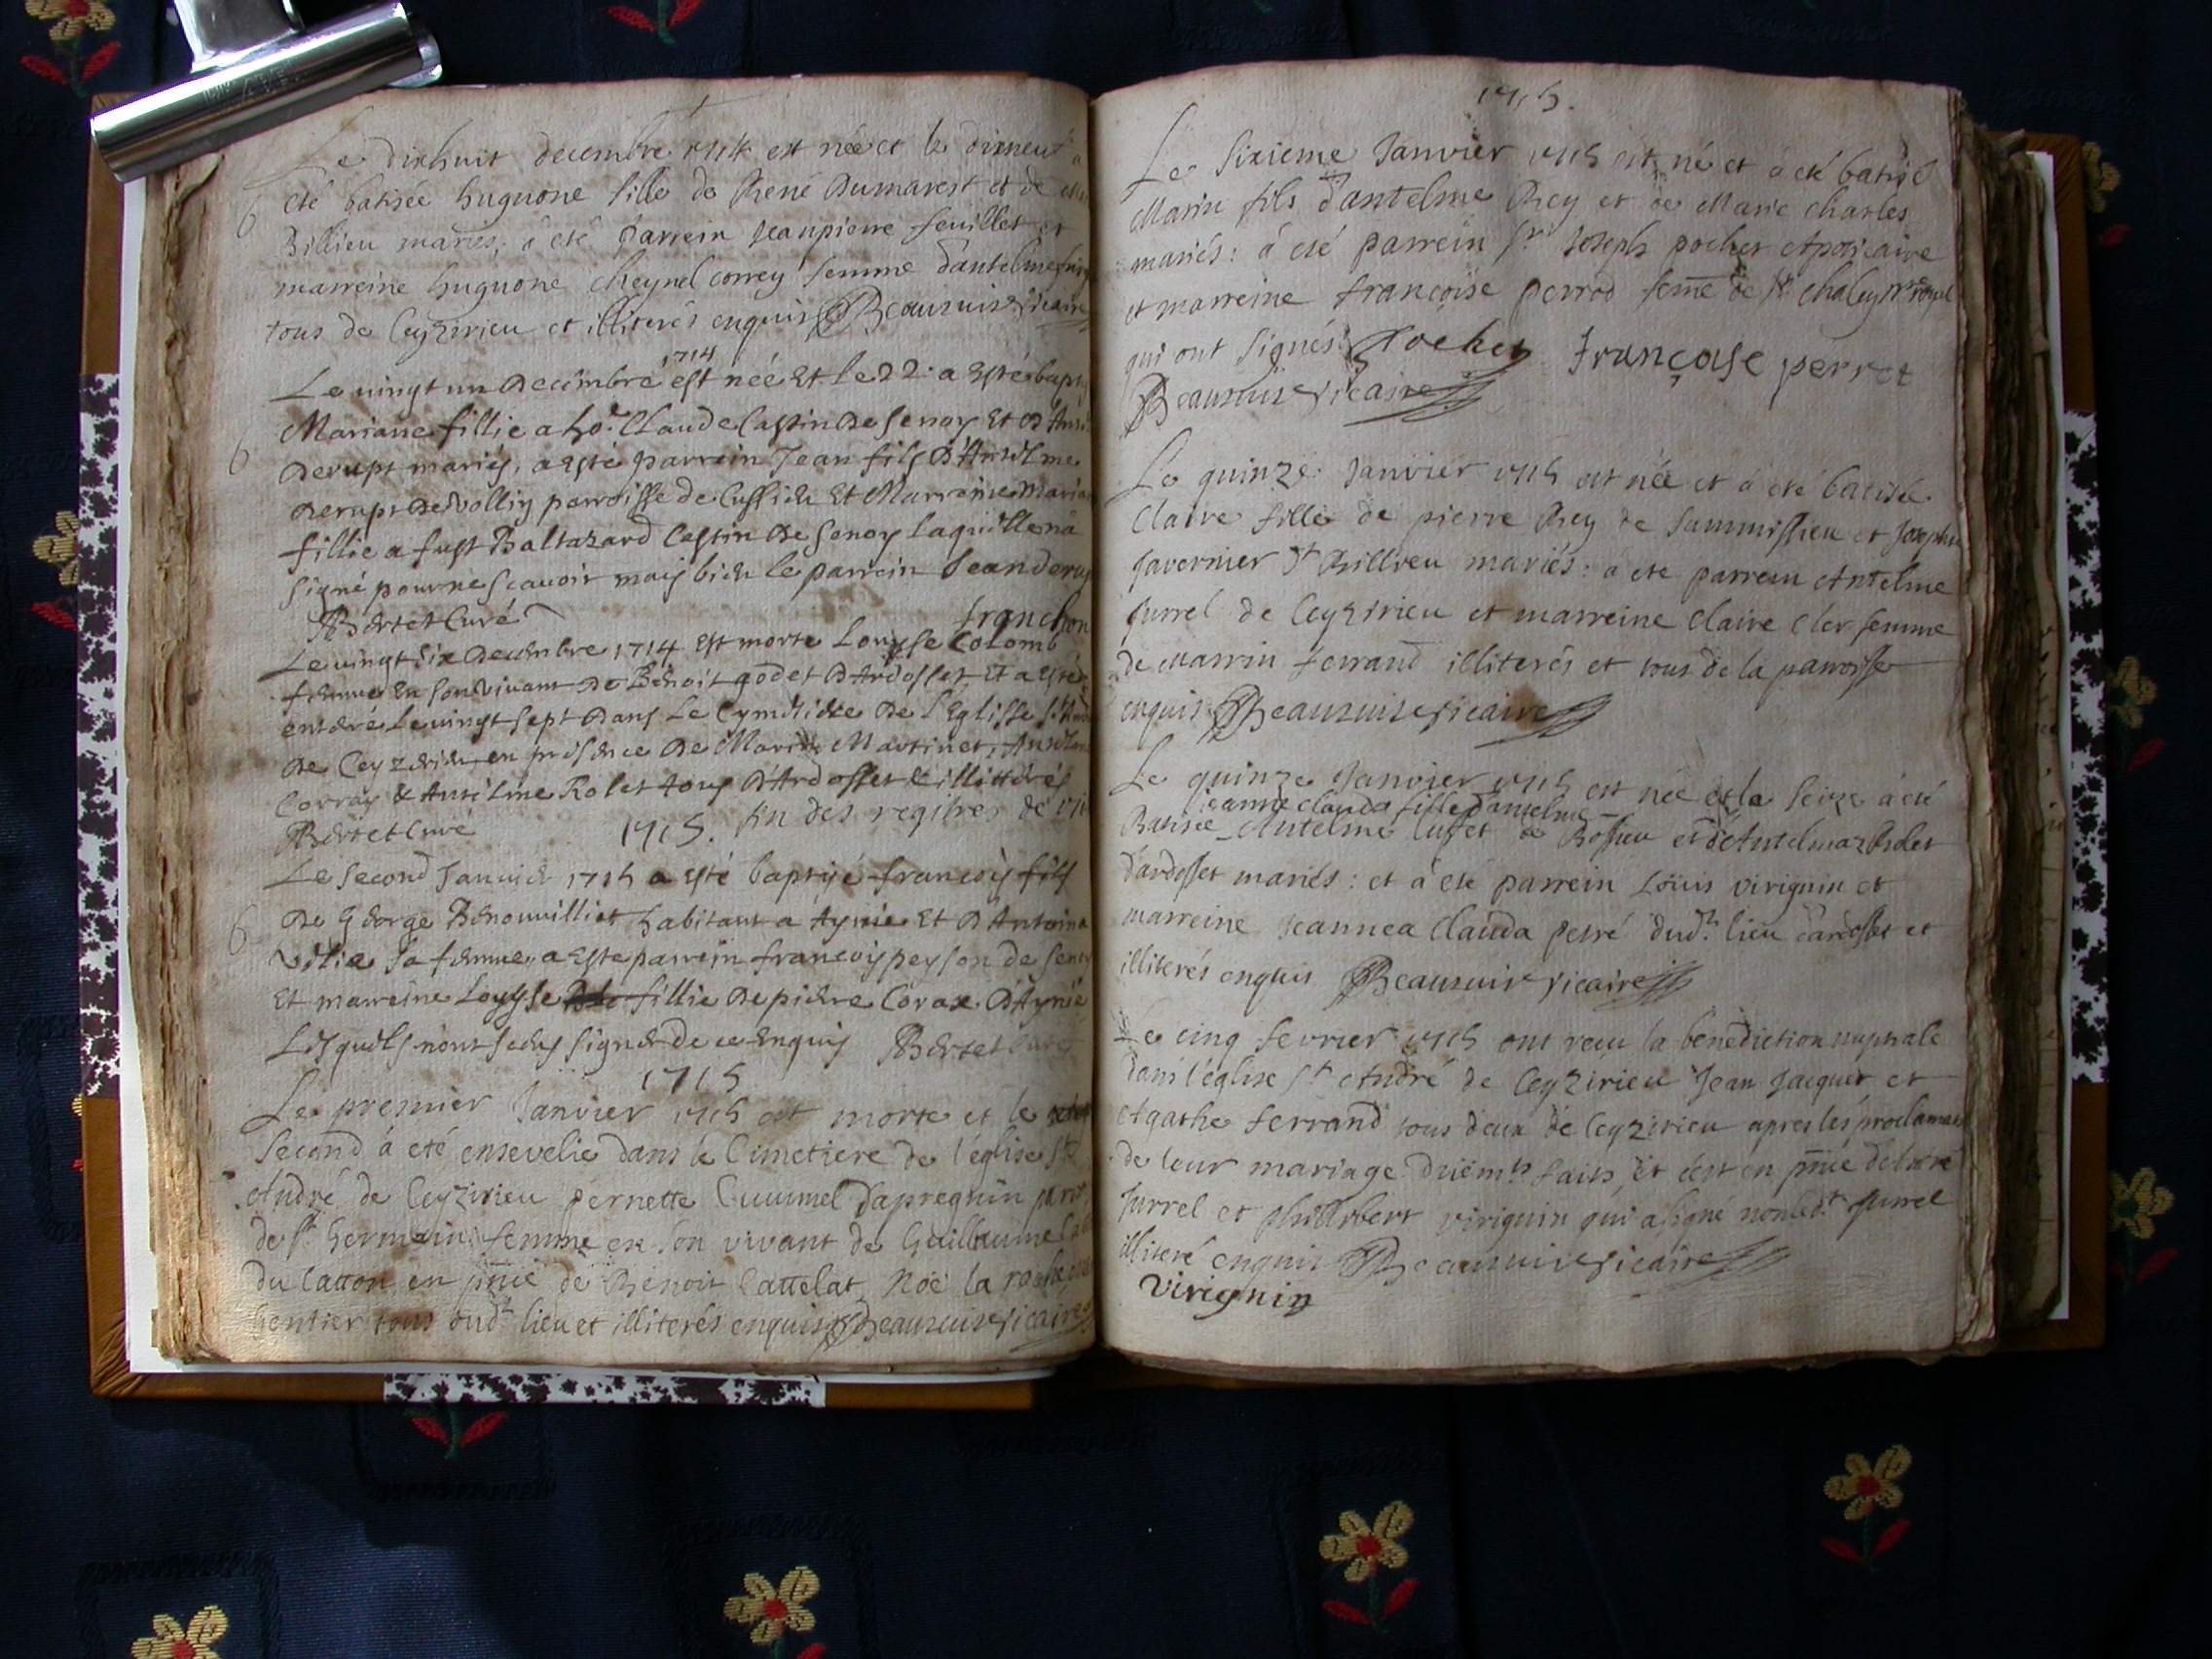 Le dixhuit decembre 1714 est née et le dixneuf a
6 eté batisée huguone fille de René Dumarest et de
Billieu mariés; à eté parrein Jeanpierre feuillet et
marreine huguone cheynel correy femme d'antelme
tous de Ceyzirieu et illiterés enquis Beauruis vicaire
1714
Le vingt un Decembre est née Et le 22. a Esté bapt
Mariane fillie a ho.^e Claude Castin De Senoy Et D'
6 Derupt mariés, a Esté parrein Jean fils D'Antelme
Derupt De Vollin parroisse de Cussieu Et Marreine Maria
fillie a fust Baltazard Castin De Senoy laquelle na
signé pour ne Scavoir mais bien le parrein Jean derup
Bertet Curé
franchon
Le vingt six Decembre 1714 Est morte Louyse Colomb
femme En son vivant De Benoit godet D'Ardosset Et a Esté
enteré Le vingt sept Dans Le Cymetiere De l'Eglisse St
De Ceyzerieu en presence De Marin Martinet, Antelme
Corray & Antelme Rolet tous D'Ardosset & illitterés
Bertet Curé 1715. fin des regitres de 171
Le Second Janvier 1715 a esté baptisé francois fils
6 De George Benonvilliet habitant a Aynie Et D'Antoina
Vitia sa femme, a Este parrein francois peyson de
Et marreine Louyse fillie De pierre Corax D'Aynie
Lesquels n'ont sceus signer de ce Enquis Bertet Curé
1715
Le premier Janvier 1715 est morte et le
second à eté ensevelie dans le Cimetiere de l'église St
André de Ceyzirieu pernette Cucumel d'apregnin
de St. Germain: femme en son vivant de Guillaume
du catton en pnñe de Benoit Cattelat, Noë la
tous dud.t lieu et illiterés enquis Beauruis vicaire
1715.
Le Sixieme Janvier 1715 est né et à eté batisé
Marin fils d'antelme Rey et de Marie charles
mariés: à eté parrein S.r Joseph pochet Apoticaire
et marreine francoise perrod feme de S.r Chaley
qui ont signés: Pochet Françoise perret
Beauruis vicaire
Le quinze Janvier 1715 est née et à eté batisée
Claire fille de pierre Rey de Sammissieu et Josephe
Javernier d.t Billieu mariés: à eté parrein Antelme
Jurrel de Ceyzirieu et marreine Claire Cler femme
de Marrin ferrand illiterés et tous de la parroisse
enquis Beauruis vicaire
Le quinze Janvier 1715 est née et le seize à eté
jeanne clauda fille d'antelme
Batisée Antelme lufet de Bossieu et de Antelmaz Rolet
d'ardosset mariés: et à eté parrein Loüis virignin et
marreine Jeannea Clauda petré dud.t lieu d'ardosset et
illiterés enquis Beauruis vicaire
Le cinq fevrier 1715 ont receu la benediction nuptiale
dans l'église S.t André de Ceyzirieu Jean Jacquet et
Agathe ferrand tous deux de Ceyzirieu apres les proclama
de leur mariage düem.ts faits, et c'est en pnñe de
Jurrel et philibert virignin qui a signé non led.t Jurrel
illiteré enquis Beauruis vicaire
Virignin